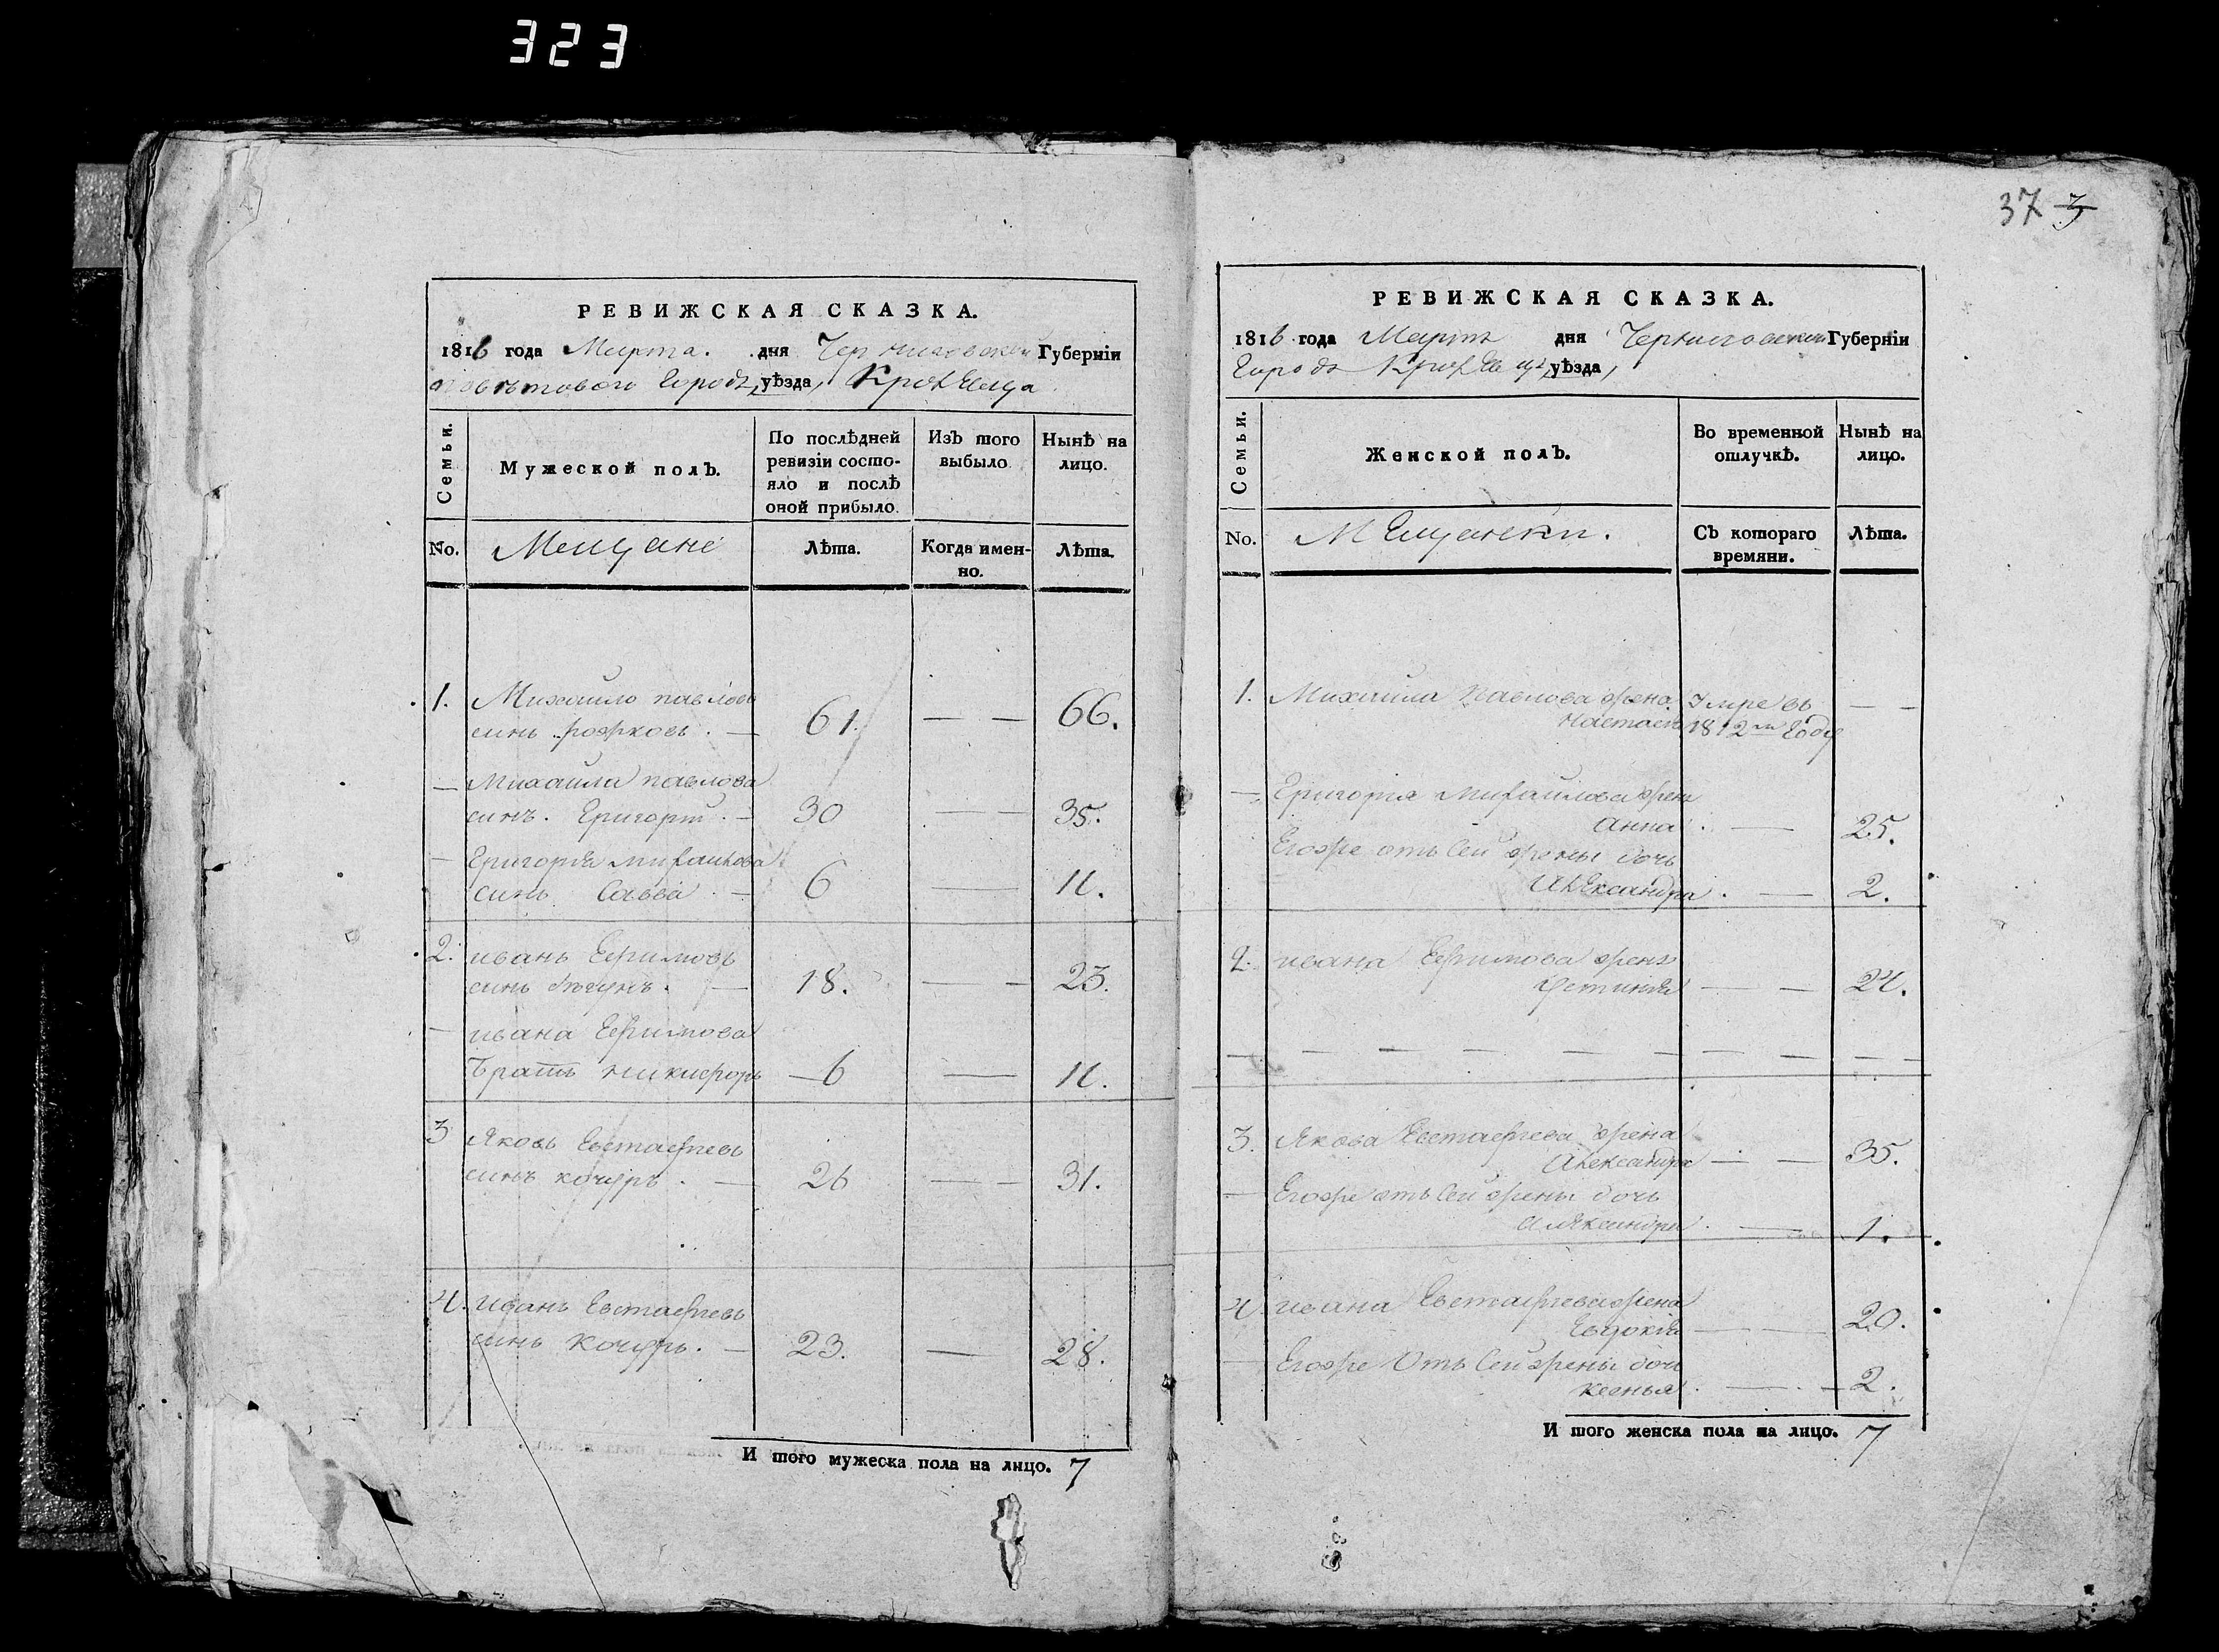 323
РЕВИЖСКАЯ СКАЗКА.
1816 года Марта. дня Черниговской Губерніи
повѣтового Города, уѣзда, Кролевца
Семьи.
Мужеской полъ.
По послѣдней
ревизіи состо-
яло и послѣ
оной прибыло.
Изъ того
выбыло.
Нынѣ на
лицо.
No.
Мещане
Лѣта.
Когда имен-
но.
Лѣта.
1. Михайло павловъ
синъ рожковъ. — 61. — — 66.
— Михаила павлова
синъ. Григорій. — 30 — — 35.
— Григорія михаилова
синъ Савва — 6 — 11.
2. иванъ Ефимовъ
синъ . — 18. — — 23.
— ивана Ефимова
братъ никифоръ — 6 — 11.
3 Яковъ Евстафіевъ
синъ кочуръ. — 26 — — 31.
4. иванъ Евстафіевъ
синъ Кочуръ. — 23. — 28.
И того мужеска пола на лицо. 7
37 3
РЕВИЖСКАЯ СКАЗКА.
1816 года Марта дня Черниговской Губерніи
Города Кролевца, уѣзда,
Семьи.
Женской полъ.
Во временной
отлучкѣ.
Нынѣ на
лицо.
No.
Мещанки.
Съ котораго
времяни.
Лѣта.
1. Михаила Павлова жена Умре въ — —
настасія 1812м Году
— Григорія михаилова жена
анна. — 25.
Егоже отъ сей жены дочь
александра. — 2.
2. ивана Ефимова жена
Устинія — — 24.
— — — — — — — — — —
3. Якова Евстафіева жена
александра — — 35.
— Егоже отъ сей жены дочь
александра. — 1.
4. ивана Евстафіева жена
Евдокія — — 20.
— Егоже Отъ сей жены дочь
ксенья. — — 2.
И того женска пола на лицо. 7